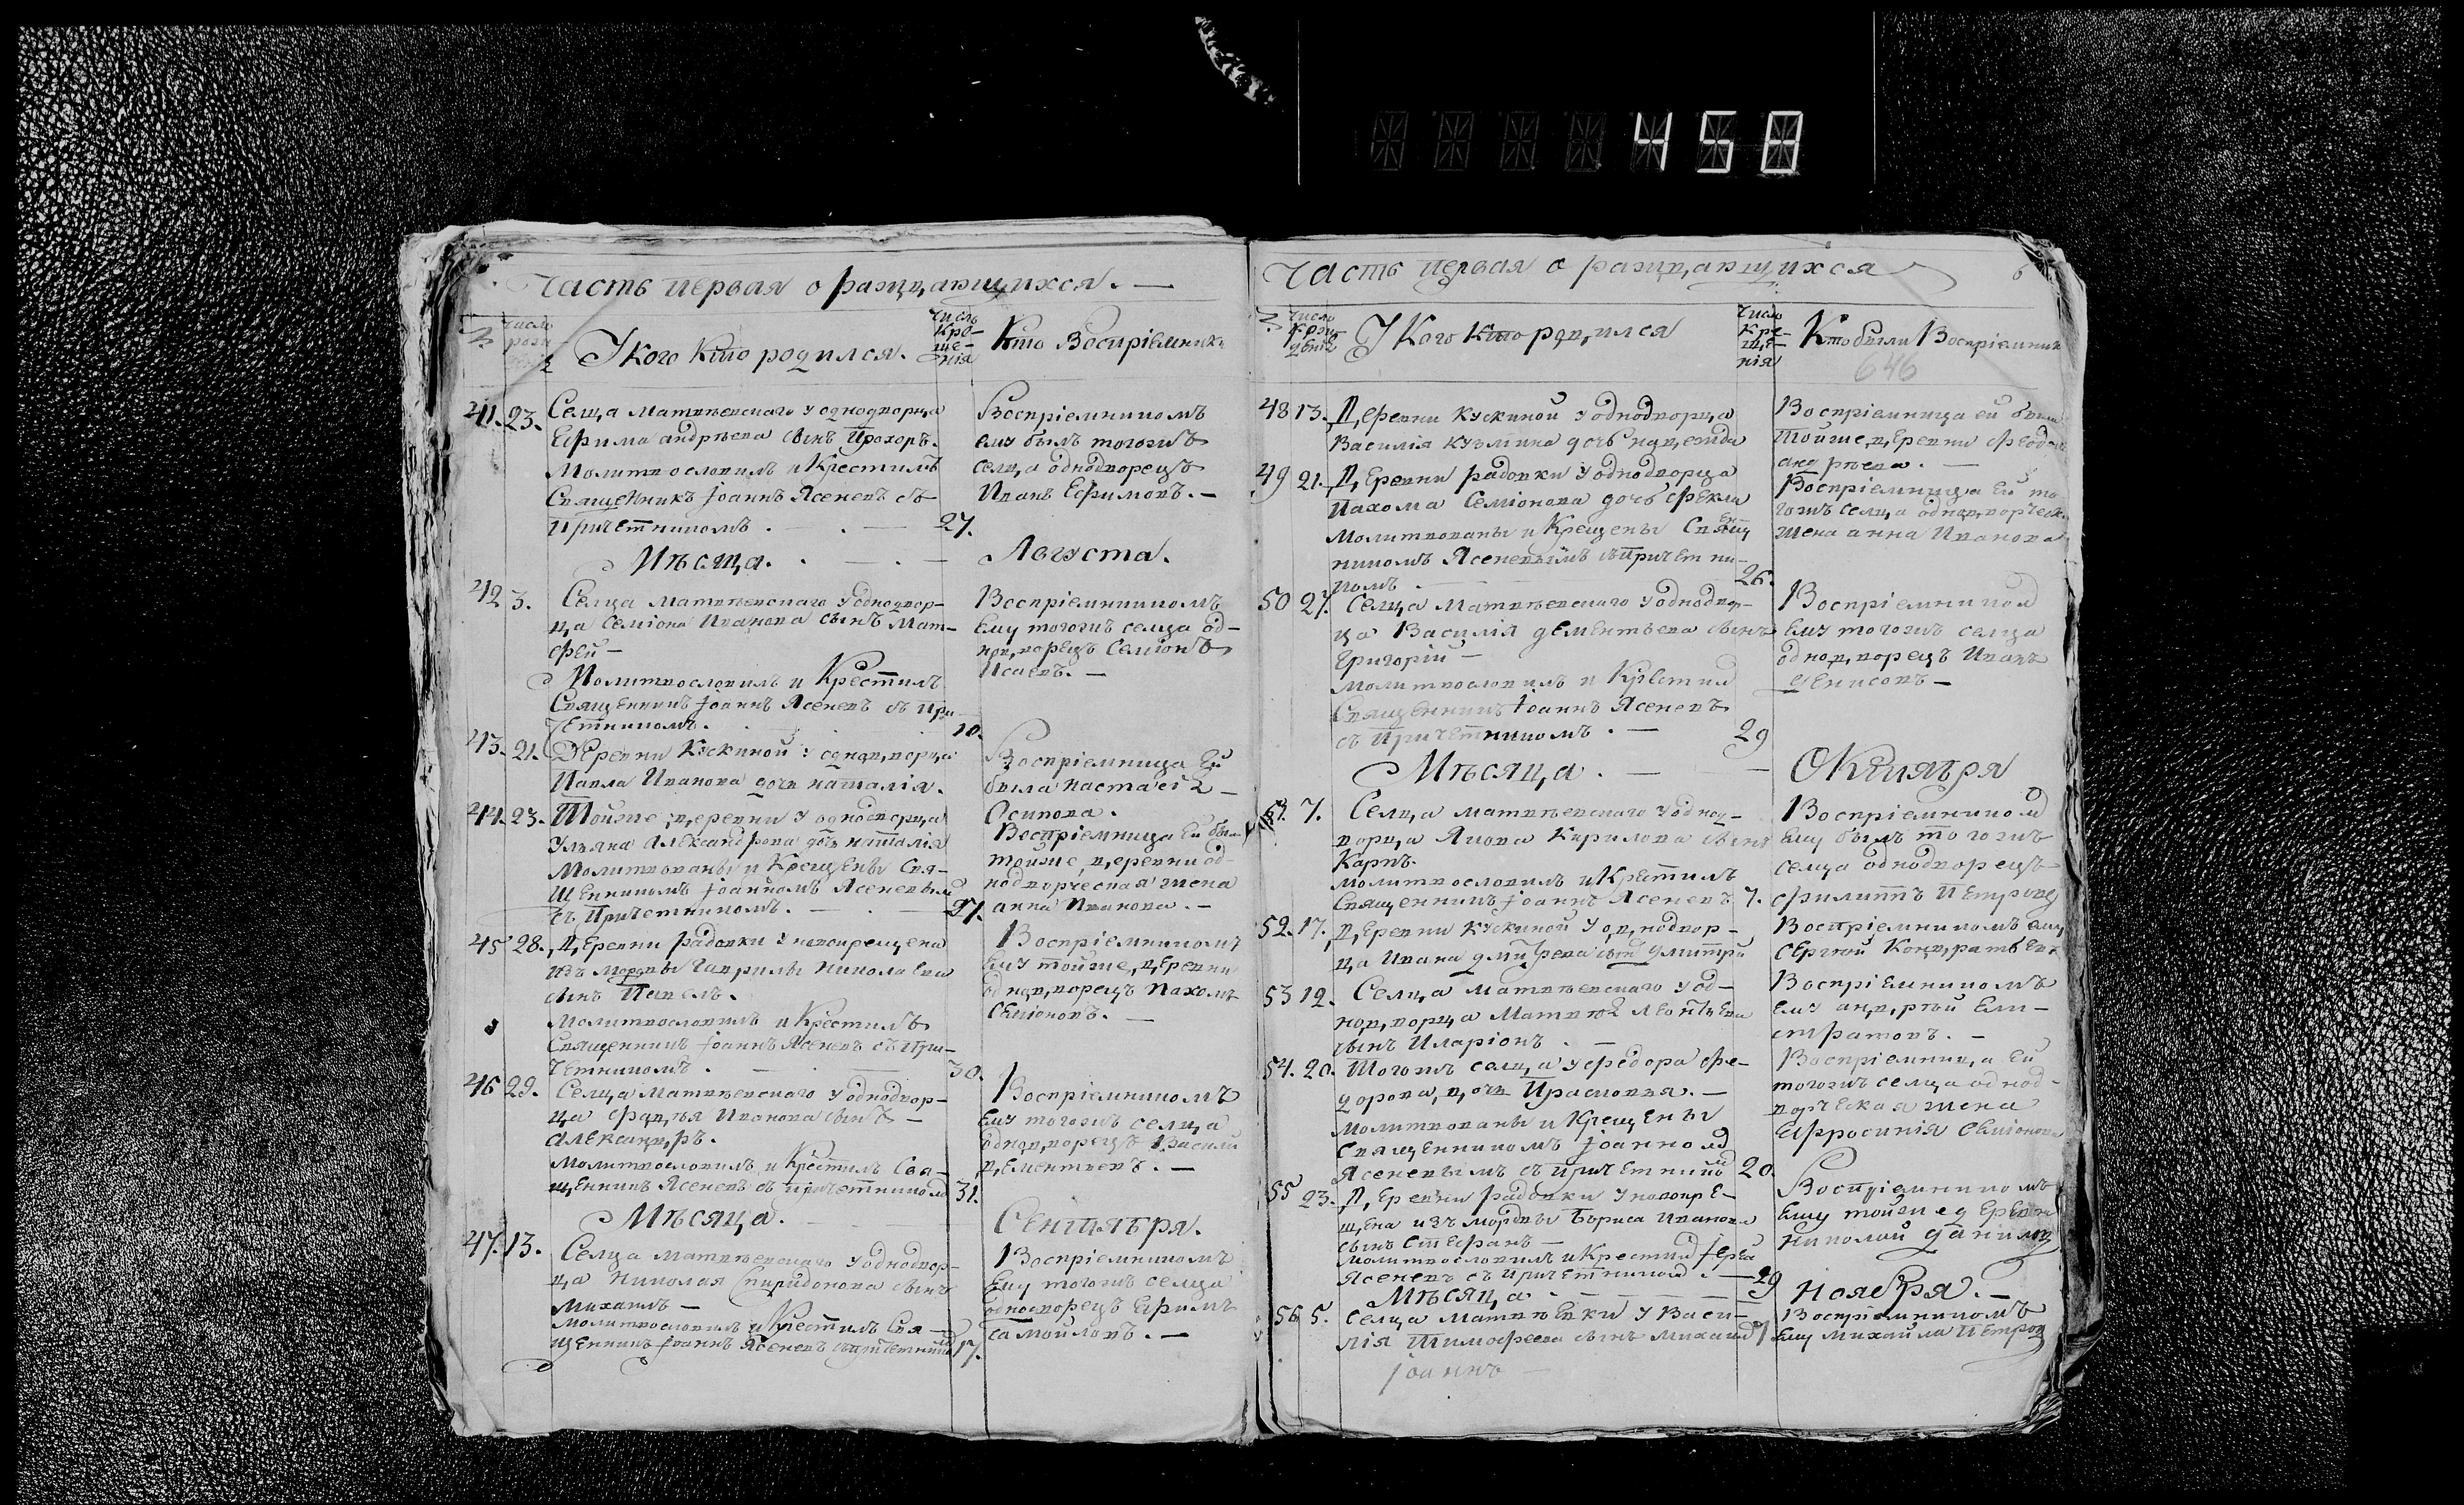 458
Часть первая о раждающихся. —
№
число
рож
Укого кто родился.
Число
Кре-
ще-
нія
Кто Воспріемники
41. 23. Селца Матвѣевскаго у однодворца
Ефима андрѣева сынъ Прохоръ.
Молитвословилъ и Крестилъ
Священникъ Іоаннъ Ясеневъ съ
Причетникомъ. — . — 27.
Воспріемникомъ
ему былъ тогожъ
селца однодворецъ
Иванъ Ефимовъ. —
Мѣсяца. . — . — Августа.
42 3. Селца Матвѣевскаго у однодвор-
ца Семіона Иванова сынъ Мат-
фей —
Молитвословилъ и Крестилъ
Священникъ Іоаннъ Ясеневъ съ При-
четникомъ. . . 10.
Воспріемникомъ
Ему тогожъ селца од-
нодворецъ Семіонъ
Исаевъ. —
43. 21. Деревни Кускиной у однодворца
Павла Иванова дочь наталія.
Воспріемница Ей
была настасія
Осипова.
44. 23. Тойже деревни у однодворца
Ульяна Александрова дочь наталія
Молитвованы и Крещены Свя-
щенникомъ Іоанномъ Ясеневымъ
съ Причетникомъ. — . — 27.
Воспріемница Ей была
тойже деревни од-
нодворческая жена
анна Иванова. —
45 28. Деревни Радовки у новокрещена
изъ мордвы Гаврилы Николаева
сынъ Павелъ.
Молитвословилъ и Крестилъ
Священникъ Іоаннъ Ясеневъ съ При-
четникомъ. — . — 30.
Воспріемникомъ
Ему тойже деревни
однодворецъ Пахомъ
Семіоновъ. —
46 29. Селца Матвѣевскаго у однодвор-
ца Фадѣя Иванова сынъ —
Александръ.
Молитвословилъ и Крестилъ Свя-
щенникъ Ясеневъ съ причетникомъ 31.
Воспріемникомъ
Ему тогожъ селца
однодворецъ Василій
Дементьевъ. —
Мѣсяца. Сентября.
47. 13. Селца Матвѣевскаго у однодвор-
ца Николая Спиридонова сынъ
Михаилъ —
Молитвословилъ и Крестилъ Свя-
щенникъ Іоаннъ Ясеневъ съ причетникомъ 17.
Воспріемникомъ
Ему тогожъ селца
однодворецъ Ефимъ
самойловъ. —
Часть первая о раждающихся
6
№
Число
Рож
денія
У Кого Кто родился
Число
Кре-
ще-
нія
Кто были Воспріемники
646
48 13. Деревни Кускиной у однодворца
Василія Кузмина дочь надежда
Воспріемница ей была
Тойже деревни
андрѣева. —
49 21. Деревни Радовки у однодворца
Пахома Семіонова дочь Фекла
Молитвованы и Крещены Священ
никомъ Ясеневымъ съ Причетни-
комъ — 26.
Воспріемница Ей то
гожъ селца однодворческ
жена анна Иванова
50 27. Селца Матвѣевскаго у однодвор-
ца Василія Дементьева сынъ
Григорій —
Молитвословилъ и Крестил
Священникъ Іоаннъ Ясеневъ
съ Причетникомъ. — 29
Воспріемником
Ему тогожъ селца
однодворецъ Иванъ
Денисовъ —
Мѣсяца. — — Октября
51. 7. Селца Матвѣевскаго у однод-
ворца Якова Кирилова сынъ
Карпъ.
Молитвословилъ и Крестилъ
Священникъ Іоаннъ Ясеневъ 7.
Воспріемником
Ему былъ тогожъ
селца однодворецъ
Филиппъ Петровъ
52. 17. Деревни Кускиной у однодвор-
ца Ивана Дмитрева сынъ Дмитрій
Воспріемникомъ ему
Сергѣй Кондратьевъ
53 19. Селца Матвѣевскаго у од-
нодворца Матвѣя Леонтьева
сынъ Иларіонъ. —
Воспріемникомъ
Ему андрѣй Ели-
стратовъ. —
54. 20. Тогожъ селца у Федора Фе-
дорова, дочь Прасковья. —
Молитвованы и Крещены
Священникомъ Іоанномъ
Ясеневымъ съ причетникомъ 20.
Воспріемница Ей
тогожъ селца однод-
ворческая жена
Ефросинія Семіонова
55 23. Деревни Радовки у новокре-
щена изъ мордвы Бориса Иванова
сынъ Стефанъ —
Молитвословилъ и Крестил Іерей
Ясеневъ съ Причетником. — 29
Воспріемникомъ
Ему тойже деревни
Николай Даниловъ
Мѣсяца — Ноября. —
56 5. Селца Матвѣевки у Васи-
лія Тимофеева сынъ Михаилъ 7
Воспріемникомъ
Ему Михайла Петров
Іоаннъ —